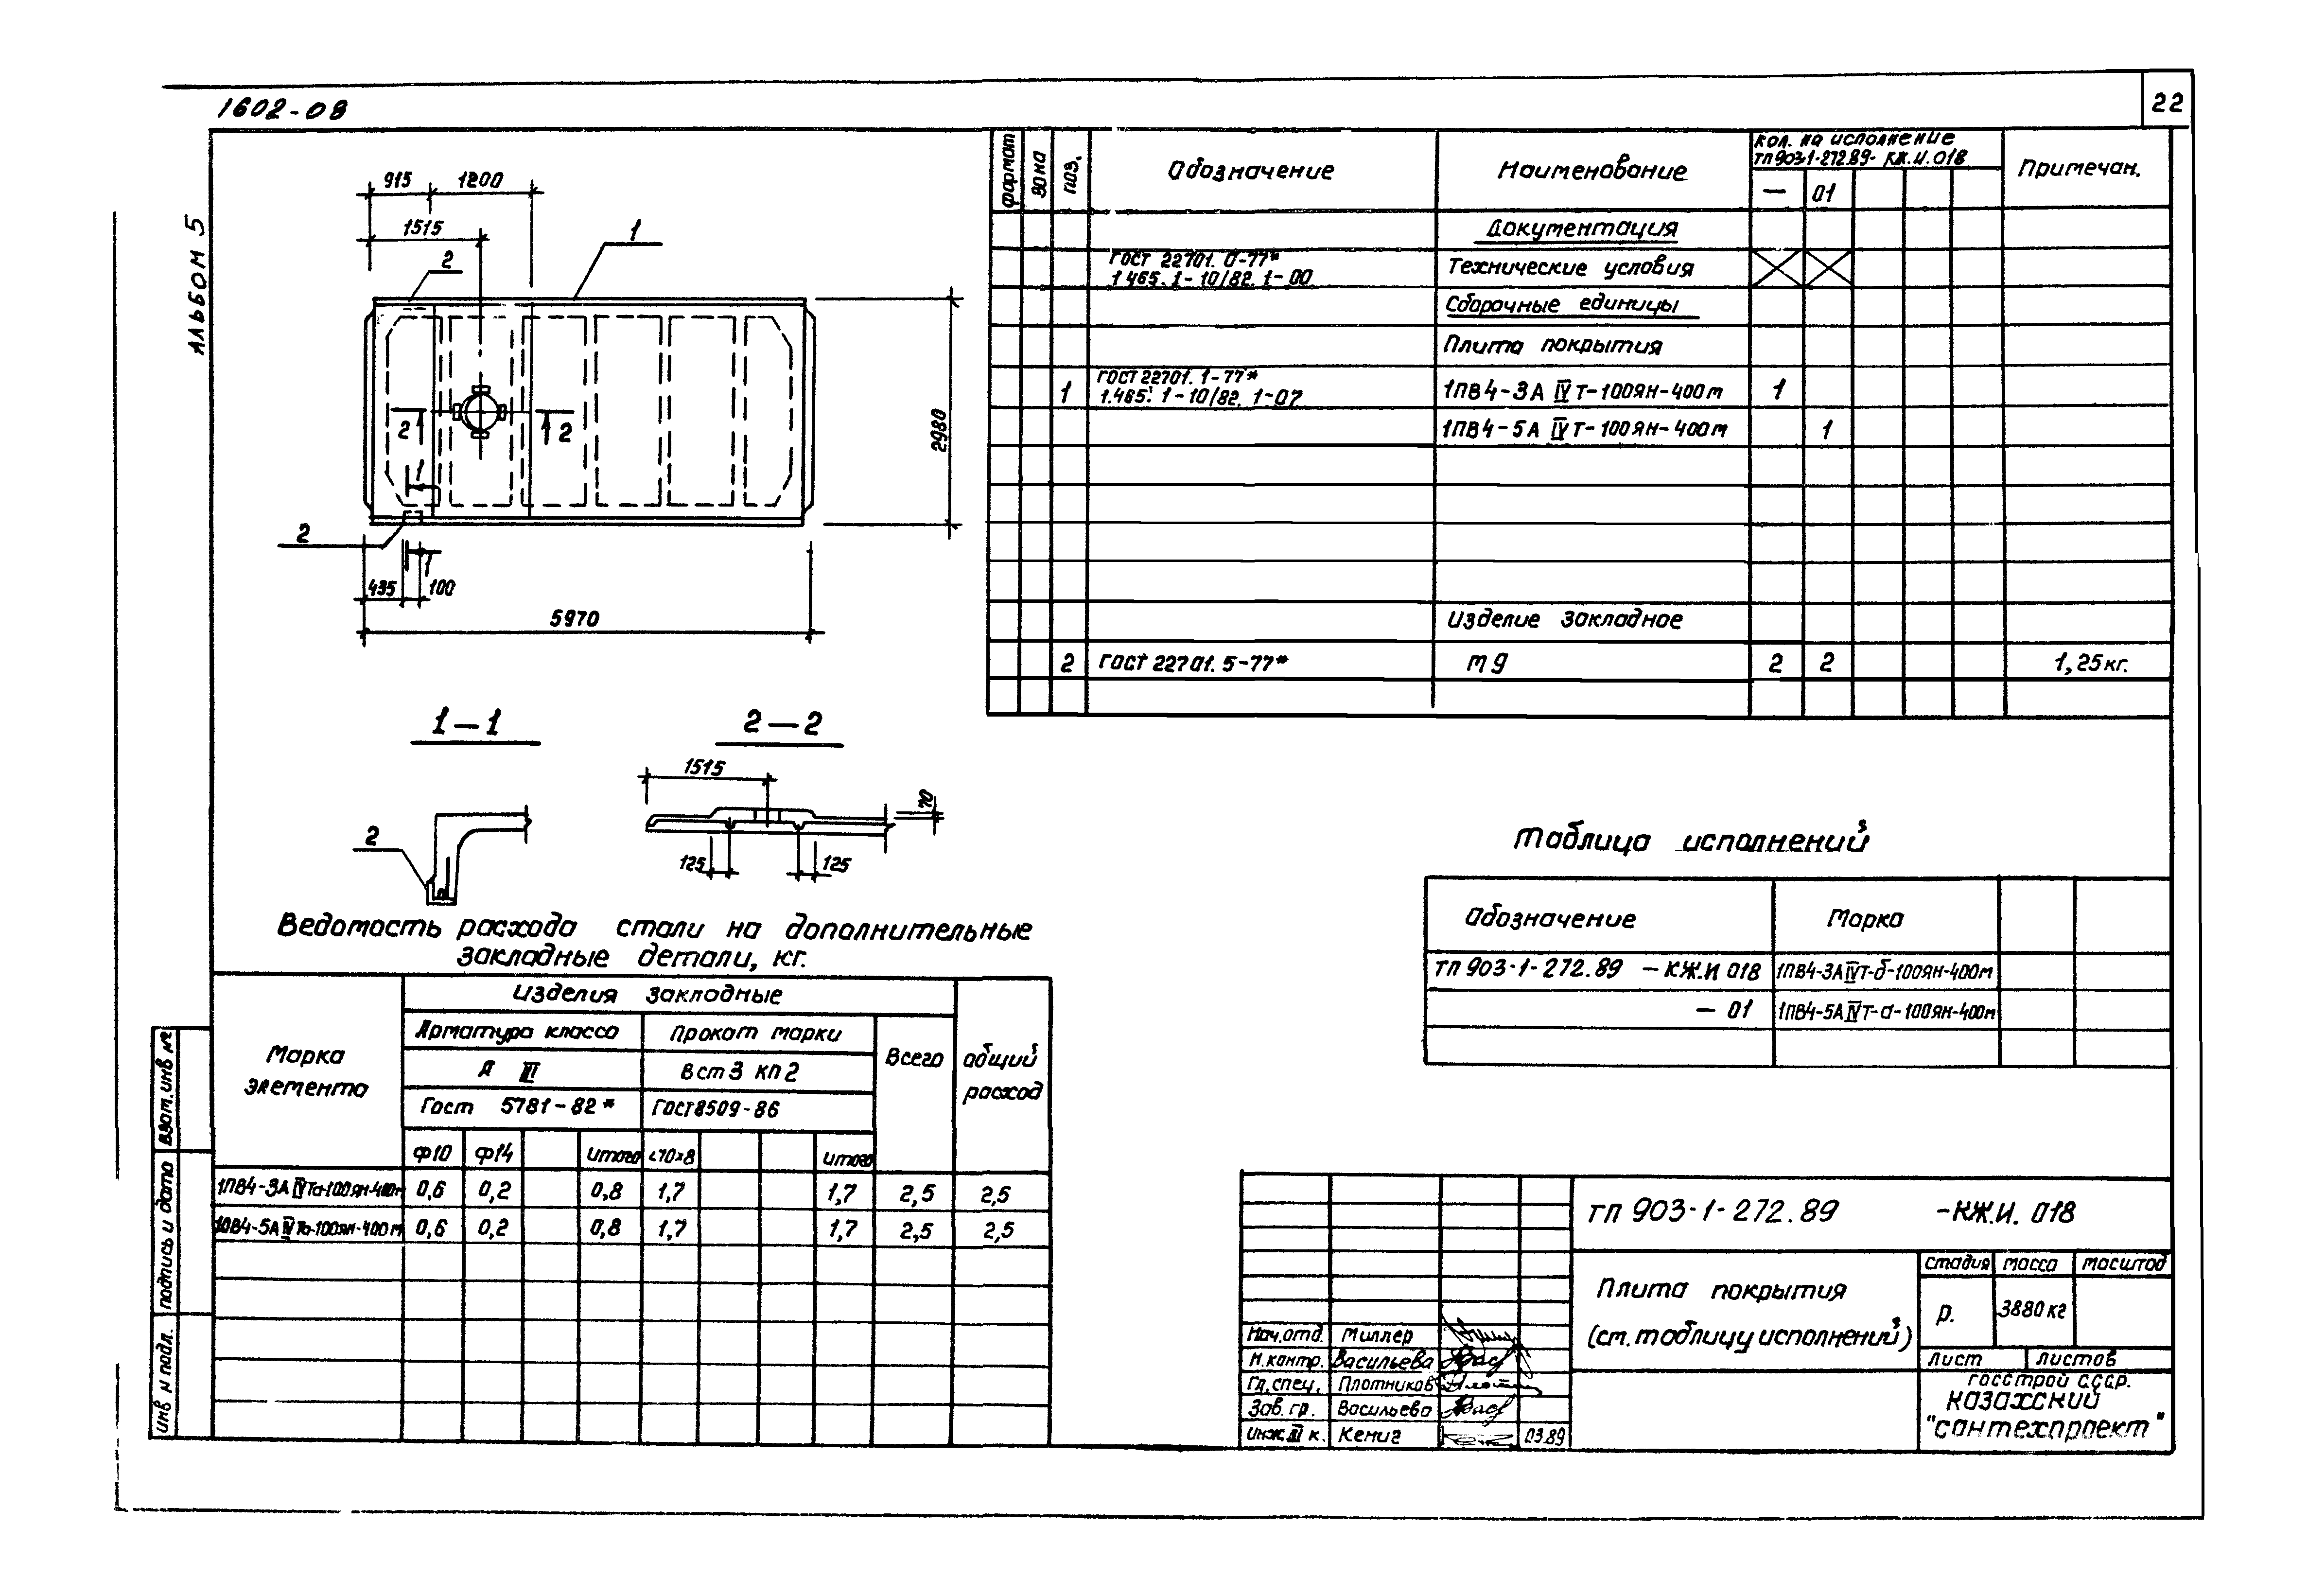 1602-08
22
АЛЬБОМ 5
915
1200
1515
2
1
2980
2
2
1
2
1
435
100
5970
1-1
2
2-2
1515
70
125
125
формат
зона
поз.
Обозначение
Наименование
Кол. на исполнение
ТП 903-1-272.89- КЖ.И.018
Примечан.
—
01
Документация
ГОСТ 22701.0-77*
1.465.1-10/82.1-00
Технические условия
Сборочные единицы
Плита покрытия
1
ГОСТ 22701.1-77*
1.465.1-10/82.1-07
1ПВ4-3А IV Т-100ЯН-400м
1
1ПВ4-5А IV Т-100ЯН-400м
1
Изделие закладное
2
ГОСТ 22701.5-77*
М 9
2
2
1,25 кг.
Ведомость расхода стали на дополнительные
закладные детали, кг.
Марка
элемента
Изделия закладные
Арматура класса
Прокат марки
Всего
Общий
расход
А III
В ст 3 кп 2
Гост 5781-82*
Гост 8509-86
ф10
ф14
итого
∟70×8
итого
1ПВ4-3А IV Та-100ЯН-400м
0,6
0,2
0,8
1,7
1,7
2,5
2,5
1ПВ4-5А IV Та-100ЯН-400м
0,6
0,2
0,8
1,7
1,7
2,5
2,5
Таблица исполнений
Обозначение
Марка
ТП 903-1-272.89 -КЖ.И 018
1ПВ4-3А IV Т-б-100ЯН-400м
- 01
1ПВ4-5А IV Т-а-100ЯН-400м
взам. инв №
подпись и дата
инв N подл.
ТП 903-1-272.89 -КЖ.И. 018
Плита покрытия
(см. таблицу исполнений)
стадия
масса
масштаб
Р.
3880 кг
лист
листов
Нач.отд.
Миллер
Н.контр.
Васильева
Гл.спец.
Плотников
Зав. гр.
Васильева
Инж. III к.
Кениг
03.89
госстрой ссср.
Казахский
"Сантехпроект"